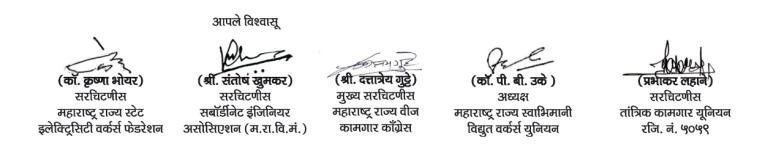 आपले विश्वासू
(कॉ. कृष्णा भोयर) (श्री. संतोष खुमकर) (श्री. दत्तात्रेय गुट्टे) (कॉ. पी. बी. उके) (प्रभाकर लहाने)
सरचिटणीस सरचिटणीस मुख्य सरचिटणीस अध्यक्ष सरचिटणीस
महाराष्ट्र राज्य स्टेट सबॉर्डीनेट इंजिनियर महाराष्ट्र राज्य वीज महाराष्ट्र राज्य स्वाभिमानी तांत्रिक कामगार यूनियन
इलेक्ट्रिसिटी वर्कर्स फेडरेशन असोसिएशन (म.रा.वि.मं.) कामगार काँग्रेस विद्युत वर्कर्स युनियन रजि. नं. ५०५९